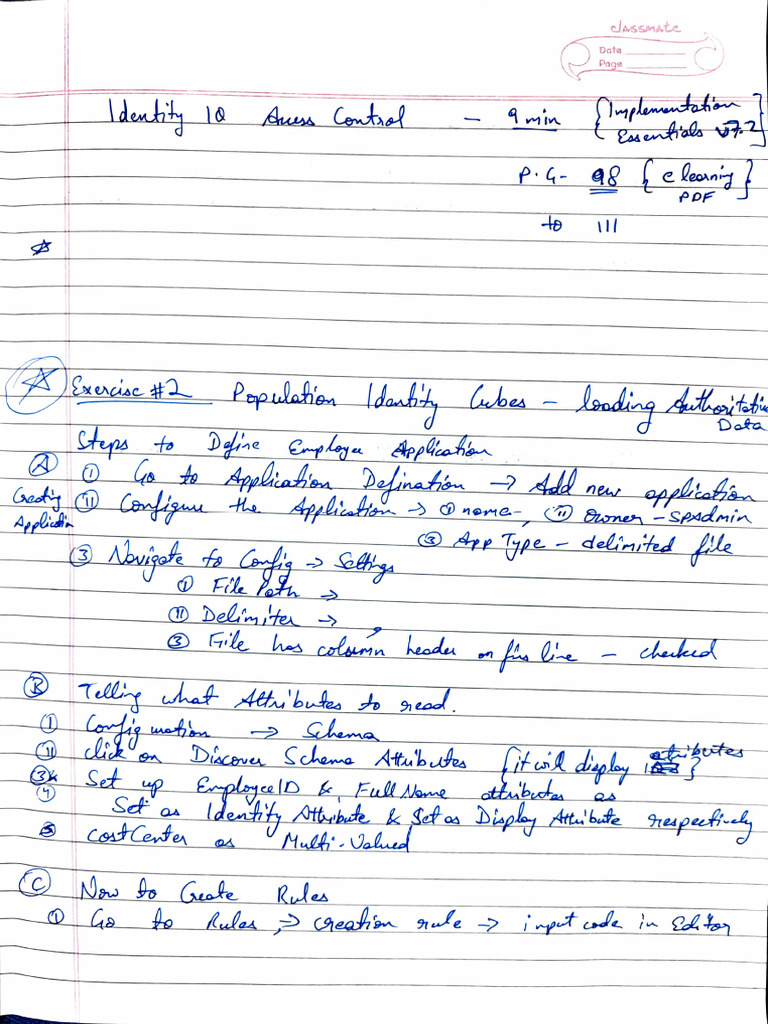 classmate
Date
Page
Identity IQ Access Control - 9 min {Implementation Essentials v7.2}
P.G- 98 {e learning PDF}
to 111
Exercise #2 Population Identity Cubes - loading Authoritative Data
Steps to Define Employee Application
A Creating Application
① Go to Application Defination → Add new application
② Configure the Application → ① name-, ② owner - spadmin
③ App Type - delimited file
③ Navigate to Config → Settings
① File Path →
② Delimiter → ,
③ File has column header on firs line - checked
B Telling what Attributes to read.
① Configuration → Schema
② click on Discover Schema Attributes {it will display attributes}
③ Set up EmployeeID & FullName attributes as
④ Set as Identity Attribute & Set as Display Attribute respectively
5 costCenter as Multi-Valued
C Now to Create Rules
① Go to Rules, → creation rule → input code in Editor